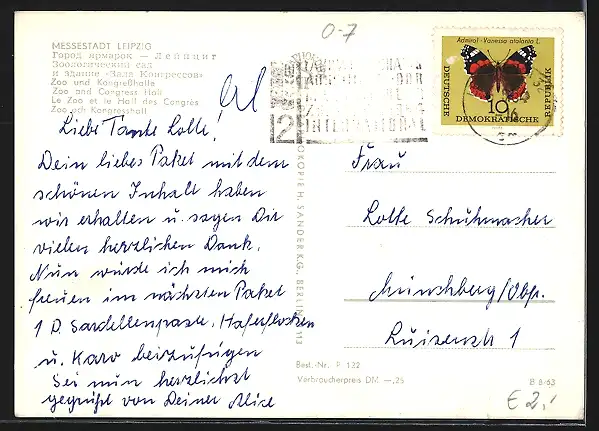 MESSESTADT LEIPZIG
Город ярмарок — Лейпциг
Зоологический сад
и здание «Зала Конгрессов»
Zoo und Kongreßhalle
Zoo and Congress Hall
Le Zoo et le Hall des Congrès
Zoo och Kongresshall
O-7
Liebe Tante Lolle!
Dein liebes Paket mit dem
schönen Inhalt haben
wir erhalten u. sagen Dir
vielen herzlichen Dank.
Nun würde ich mich
freuen im nächsten Paket
1 D. Sardellenpaste, Haferflocken
u. Karo beizufügen
Sei nun herzlichst
gegrüßt von Deiner Alice
H. SANDER KG., BERLIN
INTERNATIONAL
2
Admiral - Vanessa atalanta L.
DEUTSCHE
10
DEMOKRATISCHE
REPUBLIK
Frau
Lolle Schuhmacher
Münchberg/Obfr.
Luizenstr 1
Best.-Nr. P 132
Verbraucherpreis DM —,25
B 8/63
€ 2,-